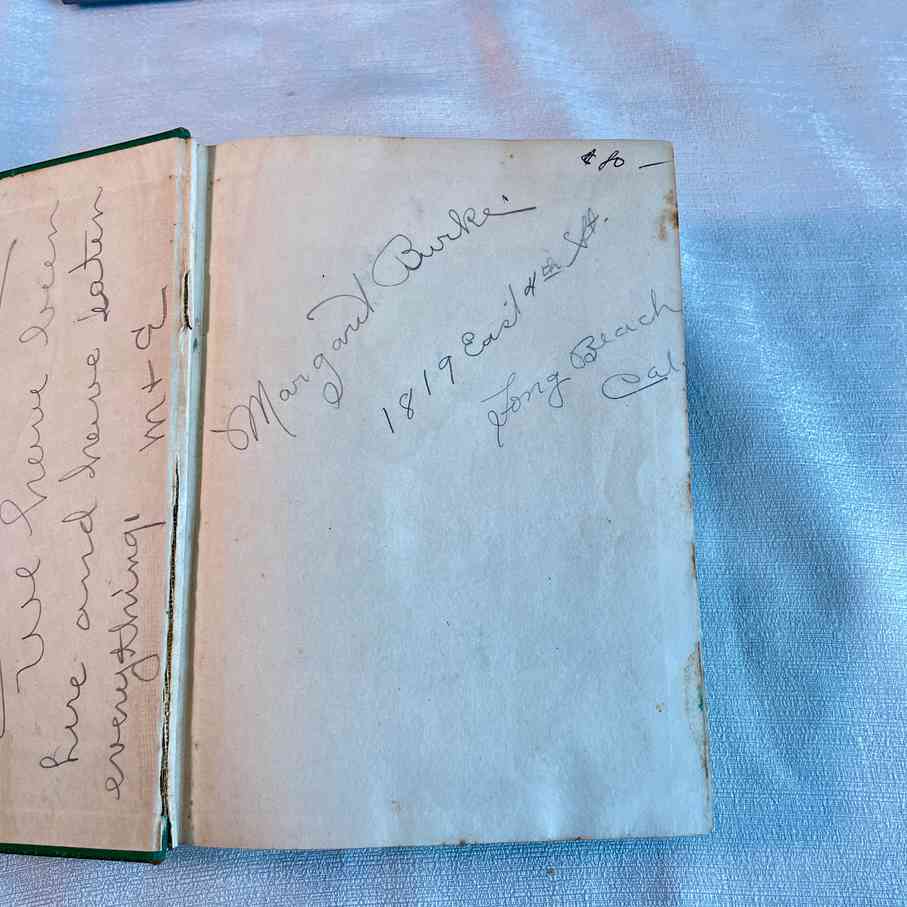 We have been
here and have eaten
everything!
M + E
$80 —
Margaret Burke
1819 East 4th St.
Long Beach
Cal.